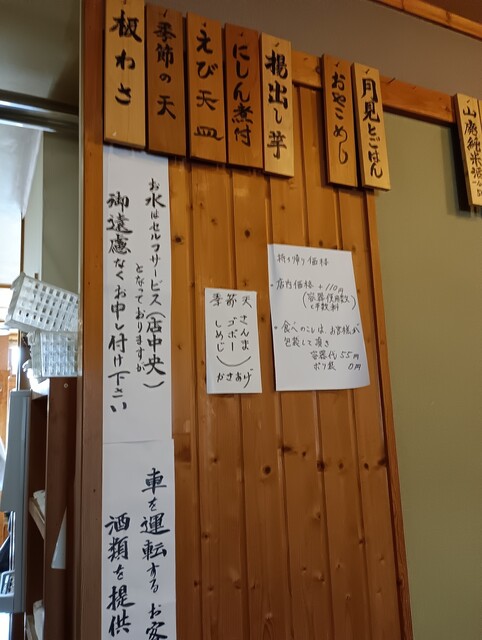 月見とごはん
おやこめし
揚出し芋
にしん煮付
えび天皿
季節の天
板わさ
お水はセルフサービス(店中央)
となっておりますが
御遠慮なくお申し付け下さい
車を運転するお客
酒類を提供
季節天
さんま
ゴボー
しめじ
かきあげ
持ち帰り価格
・店内価格 +110円
(容器使用数×
手数料)
・食べのこしは、お客様が
包装して頂き
容器代 55円
ポリ袋 0円